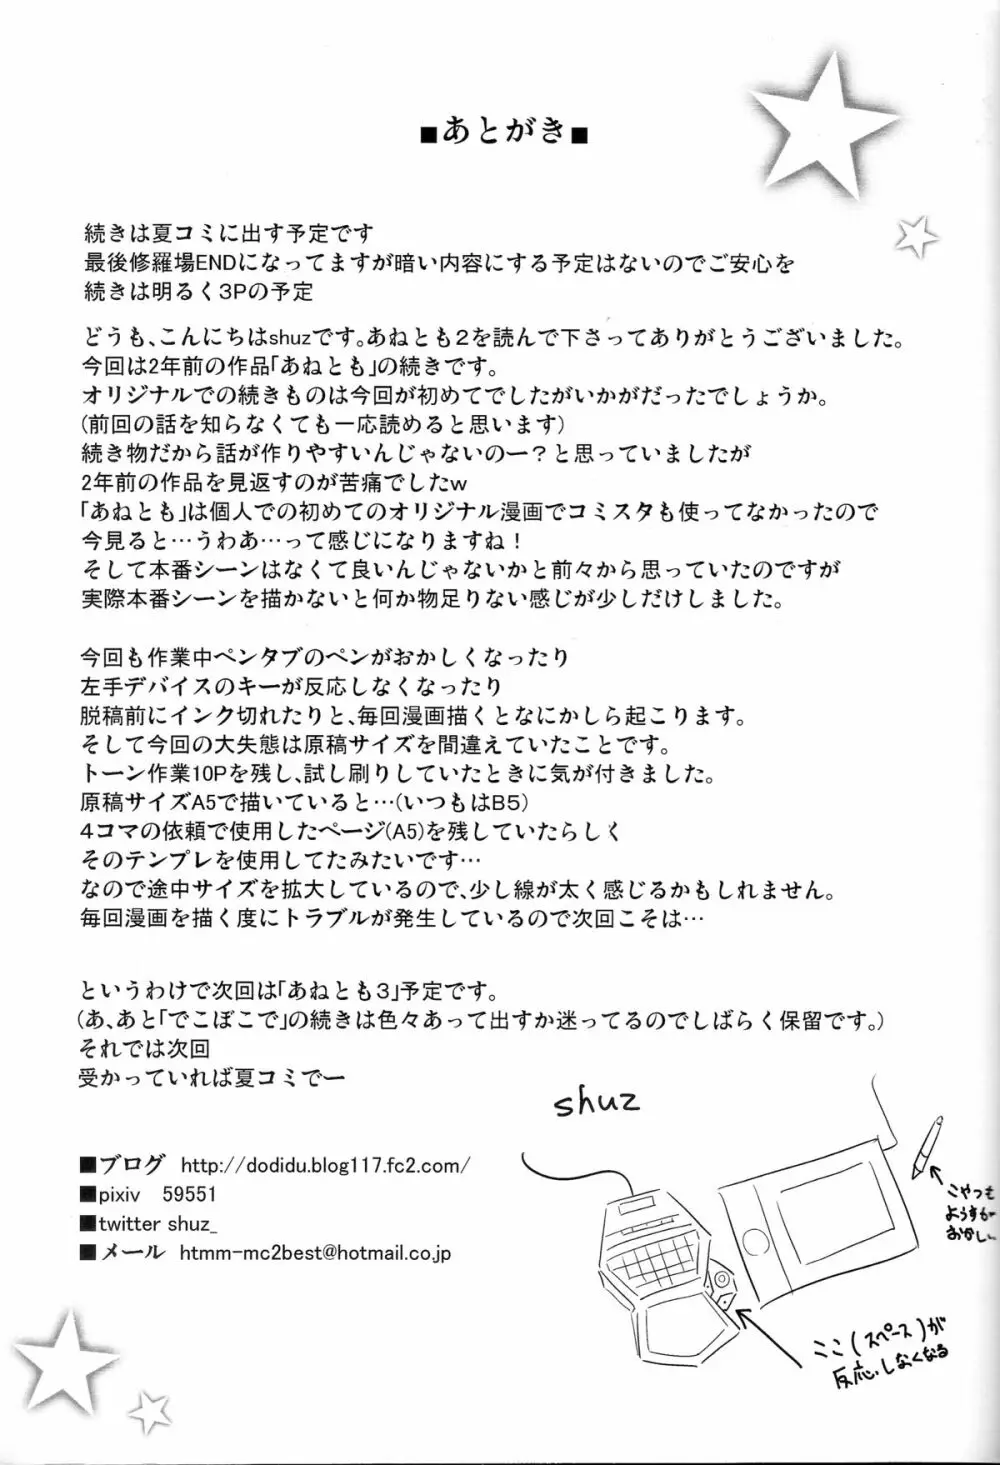 ■あとがき■
続きは夏コミに出す予定です
最後修羅場ENDになってますが暗い内容にする予定はないのでご安心を
続きは明るく3Pの予定
どうも、こんにちはshuzです。あねとも２を読んで下さってありがとうございました。
今回は2年前の作品「あねとも」の続きです。
オリジナルでの続きものは今回が初めてでしたがいかがだったでしょうか。
(前回の話を知らなくても一応読めると思います)
続き物だから話が作りやすいんじゃないのー？と思っていましたが
2年前の作品を見返すのが苦痛でしたｗ
「あねとも」は個人での初めてのオリジナル漫画でコミスタも使ってなかったので
今見ると…うわあ…って感じになりますね！
そして本番シーンはなくて良いんじゃないかと前々から思っていたのですが
実際本番シーンを描かないと何か物足りない感じが少しだけしました。
今回も作業中ペンタブのペンがおかしくなったり
左手デバイスのキーが反応しなくなったり
脱稿前にインク切れたりと、毎回漫画描くとなにかしら起こります。
そして今回の大失態は原稿サイズを間違えていたことです。
トーン作業10Pを残し、試し刷りしていたときに気が付きました。
原稿サイズA5で描いていると…(いつもはB5)
４コマの依頼で使用したページ(A5)を残していたらしく
そのテンプレを使用してたみたいです…
なので途中サイズを拡大しているので、少し線が太く感じるかもしれません。
毎回漫画を描く度にトラブルが発生しているので次回こそは…
というわけで次回は「あねとも３」予定です。
(あ、あと「でこぼこで」の続きは色々あって出すか迷ってるのでしばらく保留です。)
それでは次回
受かっていれば夏コミでー
shuz
■ブログ http://dodidu.blog117.fc2.com/
■pixiv 59551
■twitter shuz_
■メール htmm-mc2best@hotmail.co.jp
こやつも
ようすが
おかしい
ここ(スペース)が
反応しなくなる